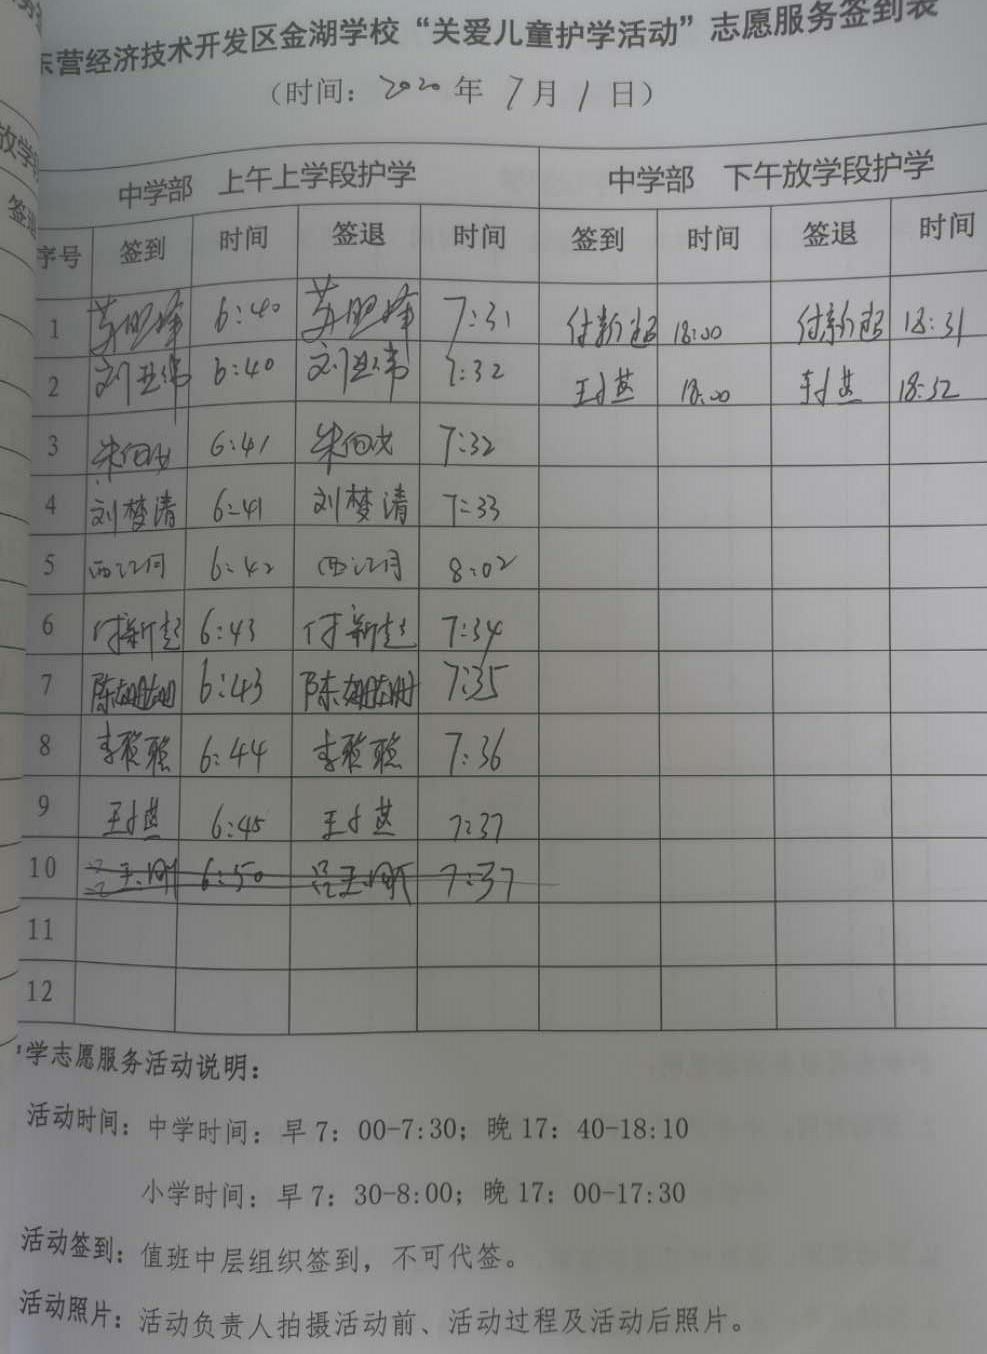 东营经济技术开发区金湖学校“关爱儿童护学活动”志愿服务签到表
（时间：2020年7月1日）
中学部 上午上学段护学 中学部 下午放学段护学
序号 签到 时间 签退 时间 签到 时间 签退 时间
1 6:40 7:31 付新超 18:00 付新超 18:31
2 刘亚伟 6:40 刘亚伟 7:32 18:00 18:32
3 6:41 7:32
4 刘梦清 6:41 刘梦清 7:33
5 6:42 8:02
6 付新超 6:43 付新超 7:34
7 陈姗姗 6:43 陈姗姗 7:35
8 李聪聪 6:44 李聪聪 7:36
9 6:45 7:37
10 6:50 7:37
11
12
学志愿服务活动说明：
活动时间：中学时间：早7：00-7:30；晚17：40-18:10
小学时间：早7：30-8:00；晚17：00-17:30
活动签到：值班中层组织签到，不可代签。
活动照片：活动负责人拍摄活动前、活动过程及活动后照片。